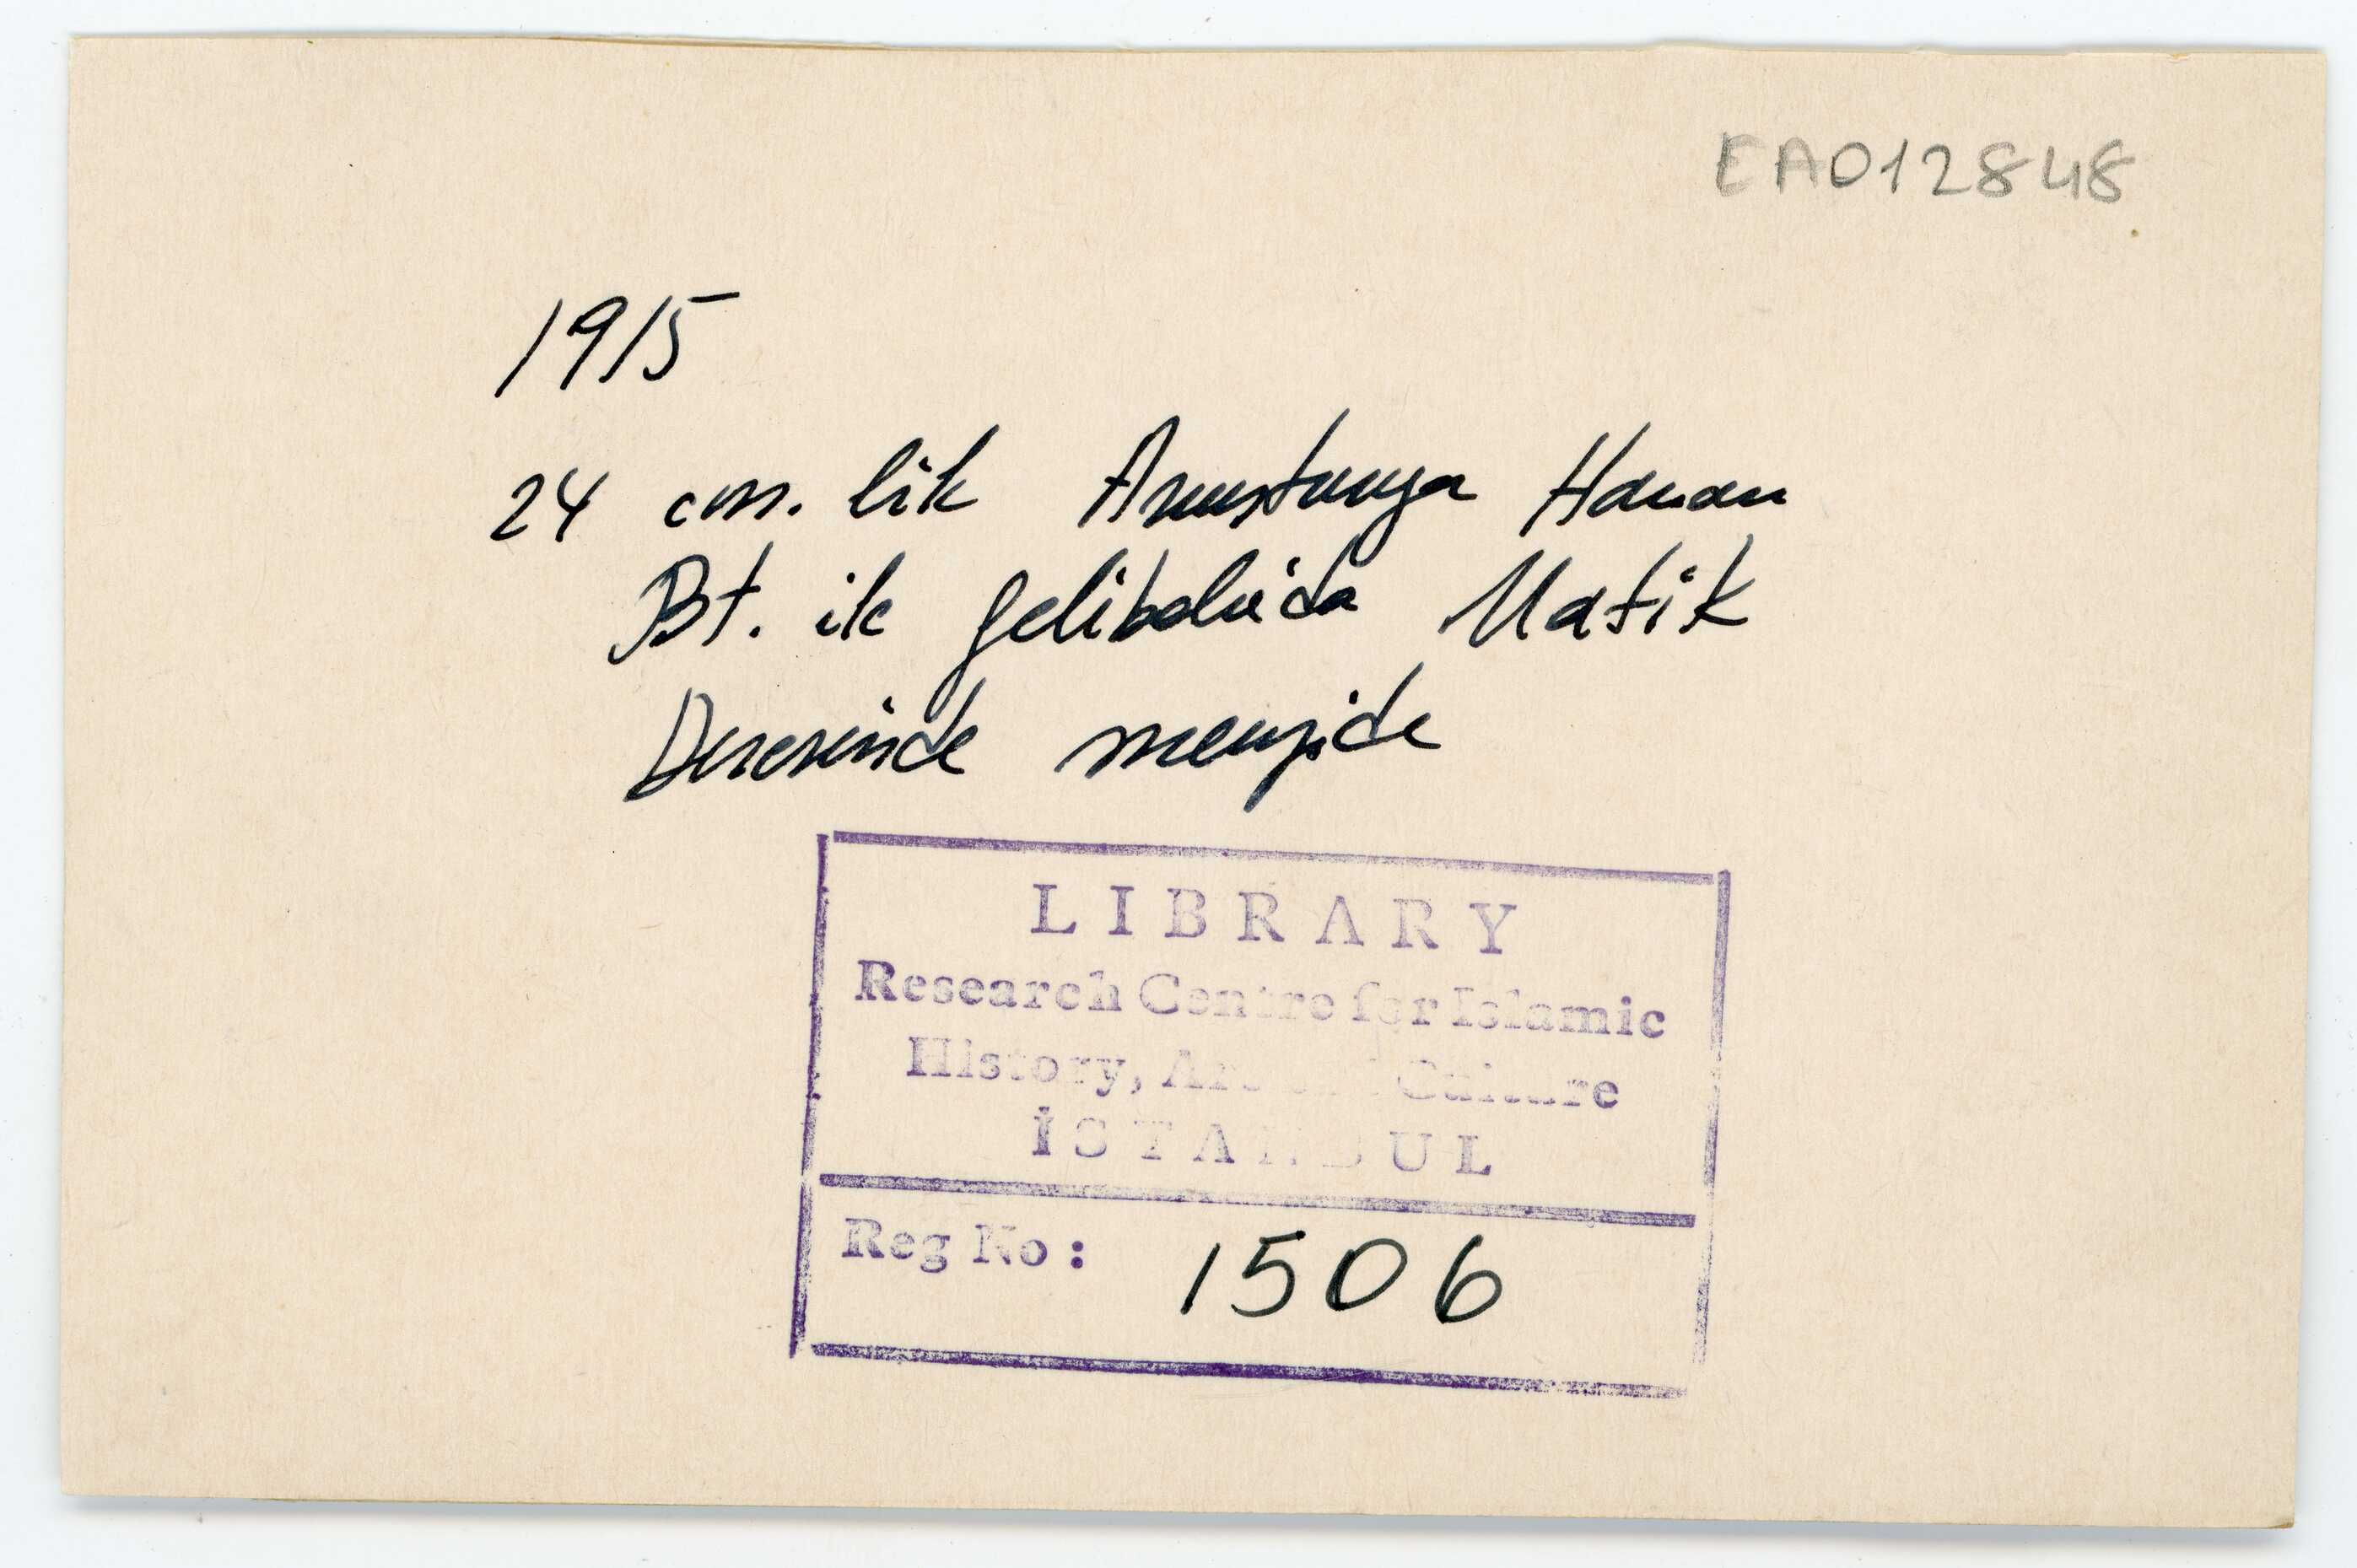 EA012848
1915
24 cm. lik Avusturya Havan
Bt. ile Gelibolu'da Matik
Deresinde mevzide
LIBRARY
Research Centre for Islamic
History, Art and Culture
İSTANBUL
Reg No : 1506